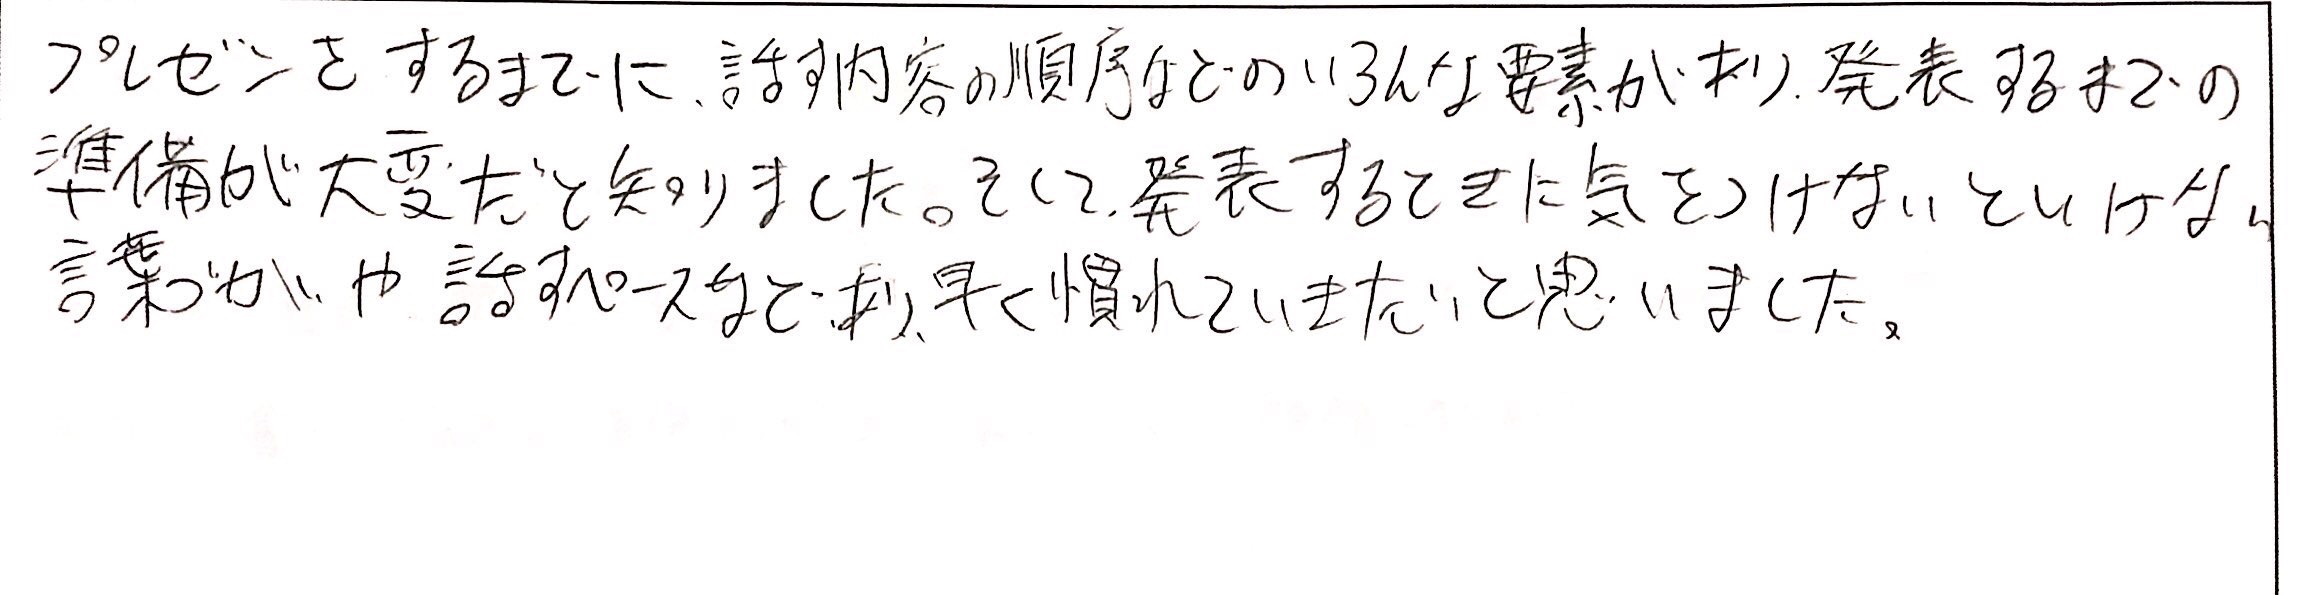 プレゼンをするまでに、話す内容の順序などのいろんな要素があり、発表するまでの
準備が大変だと知りました。そして、発表するときに気をつけないといけない
言葉づかいや話すペースなどあり、早く慣れていきたいと思いました。